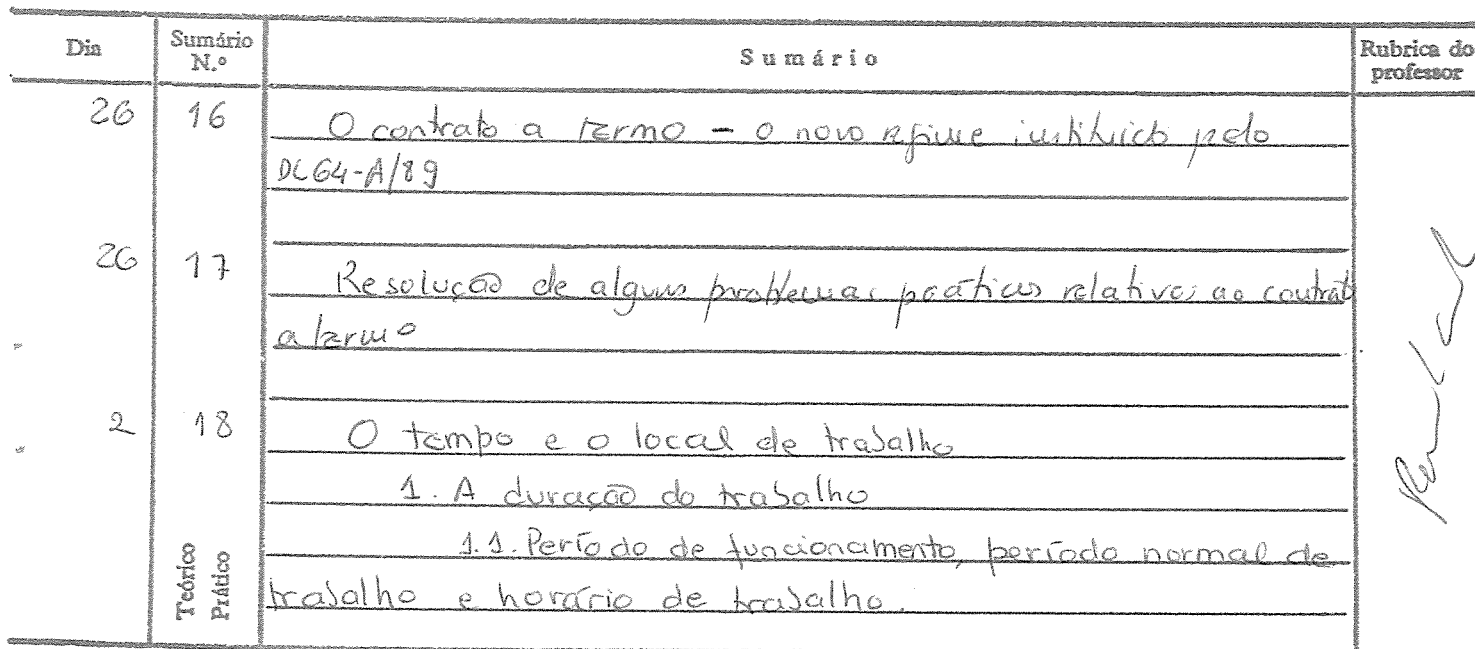 Dia Sumário N.º Sumário Rubrica do professor
26 16 O contrato a termo - o novo regime instituido pelo
DL64-A/89
26 17 Resolução de alguns problemas práticos relativos ao contrato
a termo
2 18 O tempo e o local de trabalho
1. A duração do trabalho
1.1. Período de funcionamento, período normal de
trabalho e horário de trabalho.
Teórico
Prático